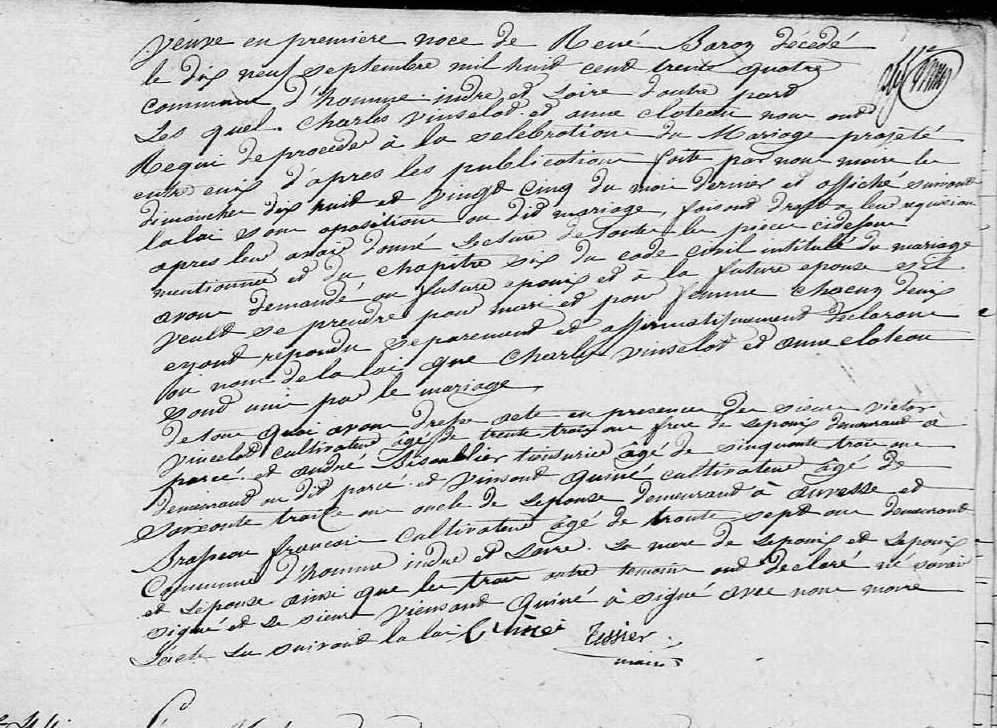 Veuve en premiere noce de René Baron décédé
le dix neuf septembre mil huid cent trente quatre
commune d'homme indre et Loire d'autre pard
Les quel. Charles Vinselot et anne cloteau nous ond
Requi de procéder à la selebration du Mariage projeté
entre euix d'apres les publications faite par nous maire les
dimanches dix huid et vingt cinq du mois dernier et affiché suivant
la loi sans opositions au did mariage, faisand droit a leur requisition
apres leur avoir donné lecture de toute les pieces cidessus
mentionnée et du chapitre six du code civil intitulé du mariage
avons demandé au future epouix et à la future epouse s'il
veult se prendre pour mari et pour femme chacun d'euix
eyant repondu séparement et affirmatifvement déclarons
au nom de la loi que Charles Vinselot et anne cloteau
sond unis par le mariage,
de tous quoi avons dressé acte en presence des sieurs victor
Vincelot cultivateur âgé de trente trois ans frere de l'epouix demeurand à
parcé. et andré âgé de sinquante trois ans
demeurand au dit parcé. et Vinsand Quiné cultivateur âgé de
soixante trois ans oncle de l'epouse demeurand à auvesse et
Brasseau francois cultivateur âgé de trente sept ans demeurand
Commune d'homme indre et Loire. la mere de l'epouix et l'epouix
et l'épouse ainsi que les trois autre temoins ond declaré ne savoir
signé et le sieur Viensand Quiné à signé avec nous maire
l'acte lu suivand la loi
Tessier
maire